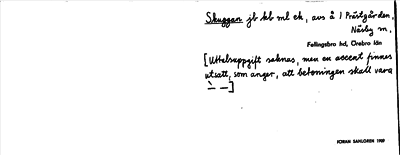 Skuggan jb kb ml ek, avs å 1 Prästgården,
Näsby sn,
Fellingsbro hd, Örebro län
[Uttalsuppgift saknas, men en accent finnes
utsatt, som anger, att betoningen skall vara
∸ —]
JÖRAN SAHLGREN 1909